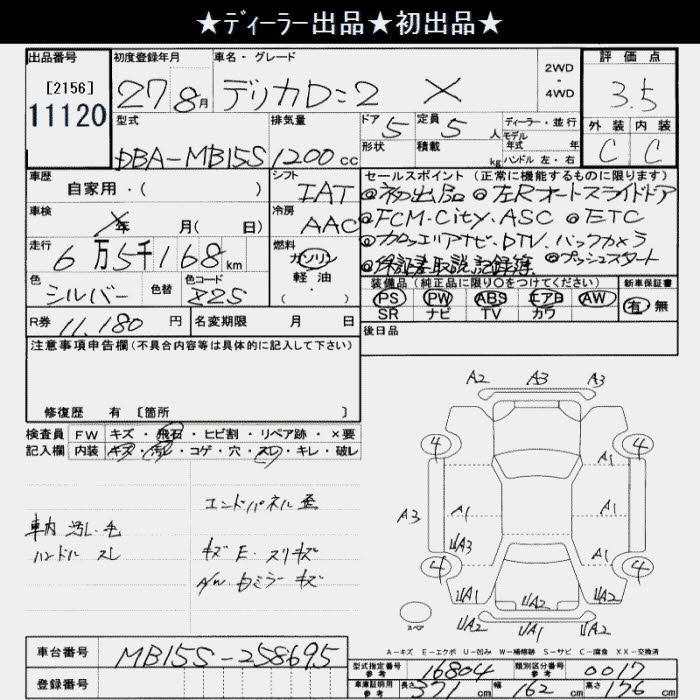 ★ディーラー出品★初出品★
出品番号 初度登録年月 車名・グレード 2WD・4WD 評価点
[2156]
11120
27 8月 デリカD:2 X 3.5
型式 排気量 ドア 5 定員 5人 ディーラー・並行 外装 内装
DBA-MB15S 1200cc 形状 積載 kg モデル年式 年 ハンドル 左・右 C C
車歴 シフト セールスポイント(正常に機能するものに限ります)
自家用・( ) IAT ◎初出品 ◎左Rオートスライドドア
車検 年 月( 日) 冷房 AAC ◎FCM-City.ASC ◎ETC
走行 燃料 ◎カロッツェリアナビ・DTV.バックカメラ
6万5千168km ガソリン 軽油・( ) ◎保証書取説記録簿 ◎プッシュスタート
色 シルバー 色替 色コード 225 装備品(純正品に限り○をつけてください) 新車保証書
PS PW ABS エアB AW 有 無
SR ナビ TV カワ
R券 11,180円 名変期限 月 日 後日品
注意事項申告欄(不具合内容等は具体的に記入して下さい)
修復歴 有 [箇所 ]
検査員 FW キズ・飛石・ヒビ割・リペア跡・×要
記入欄 内装 キズ・汚レ・コゲ・穴・スレ・キレ・破レ
エンドパネル歪
車内 汚レ・毛
ハンドル スレ
キズ E・スリキズ
A/W・Dミラーキズ
A2 A3 A3
4 4
A1
A3 A1 A1
UA3 A1
4 4
UA1 UA2
UA2 UA1 UA2
スペア
A-キズ E-エクボ U-凹み W-補修跡 S-サビ C-腐食 XX-交換済
車台番号 MB15S-258695
登録番号
型式指定番号 参考 16804 類別区分番号 参考 0017
車庫証明用 参考 長さ 371cm 幅 162cm 高さ 156cm